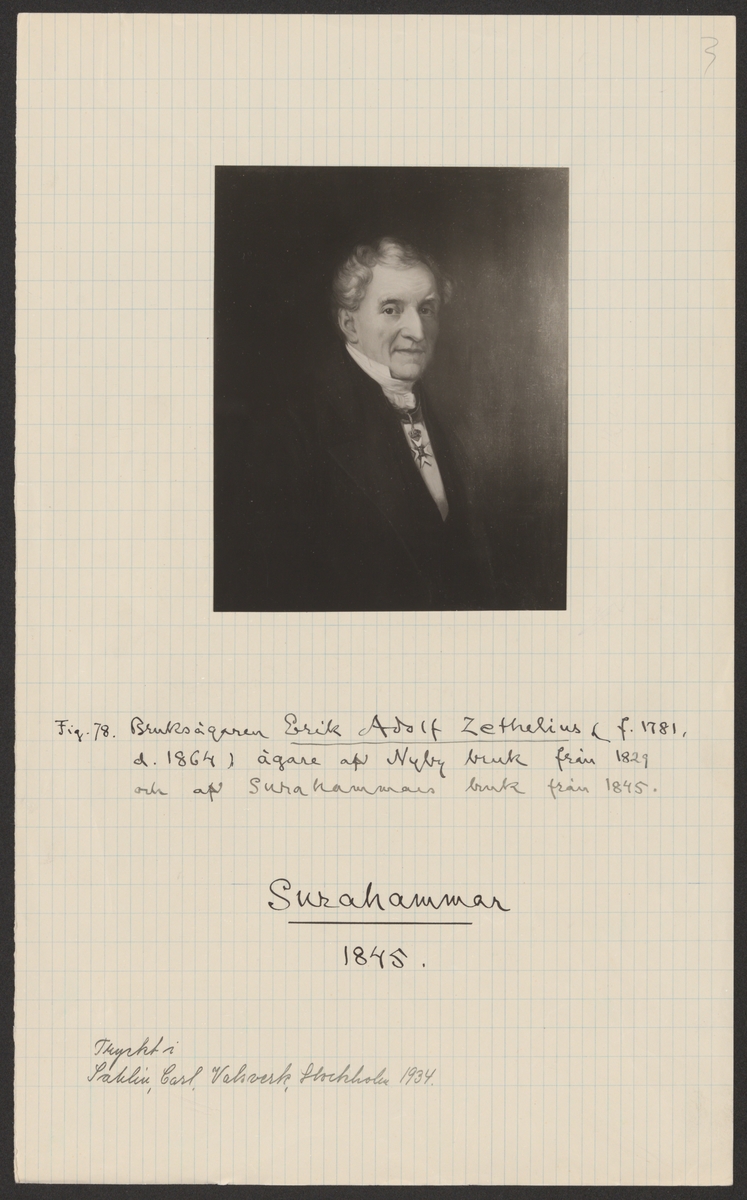 3
Fig. 78. Bruksägaren Erik Adolf Zethelius (f. 1781,
d. 1864) ägare af Nyby bruk från 1829
och af Surahammars bruk från 1845.
Surahammar
1845.
Tryckt i
Sahlin, Carl, Valsverk, Stockholm 1934.